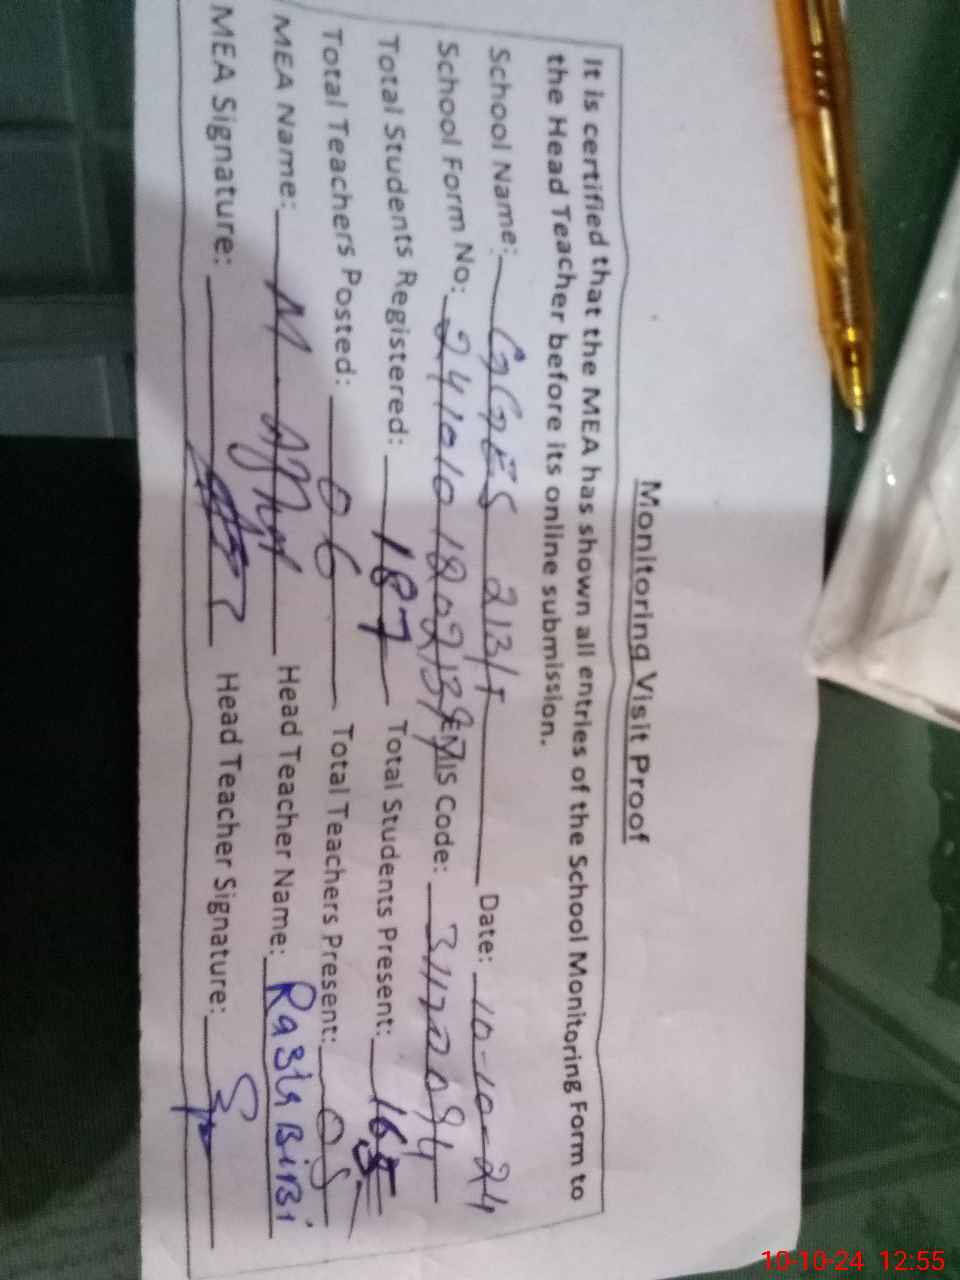 Monitoring Visit Proof
It is certified that the MEA has shown all entries of the School Monitoring Form to
the Head Teacher before its online submission.
School Name: GGES 213/T Date: 10-10-24
School Form No: EMIS Code:
Total Students Registered: 187 Total Students Present: 165
Total Teachers Posted: 06 Total Teachers Present: 05
MEA Name: M. Head Teacher Name: Razia BiBi
MEA Signature: Head Teacher Signature:
10-10-24 12:55